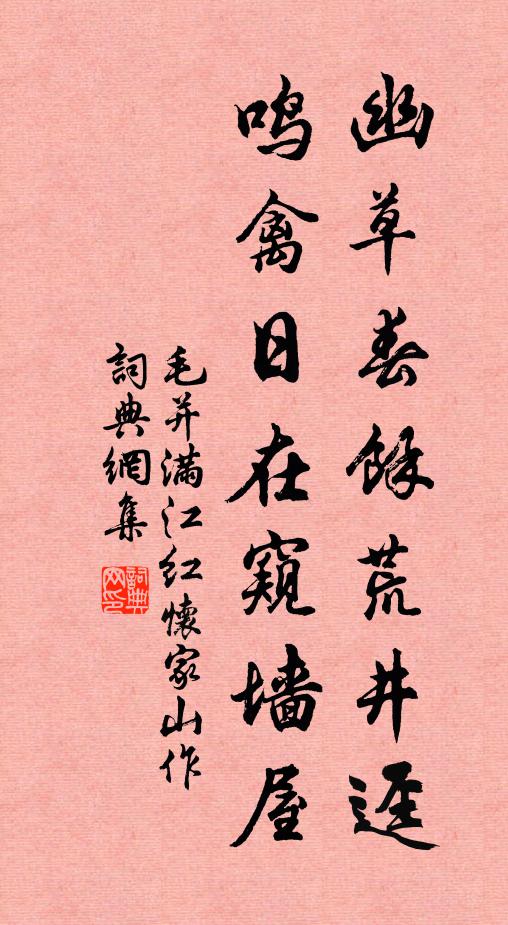 幽草春餘荒井逕
鸣禽日在窺墙屋
毛并滿江红懷家山作
詞典網集
詞典网印